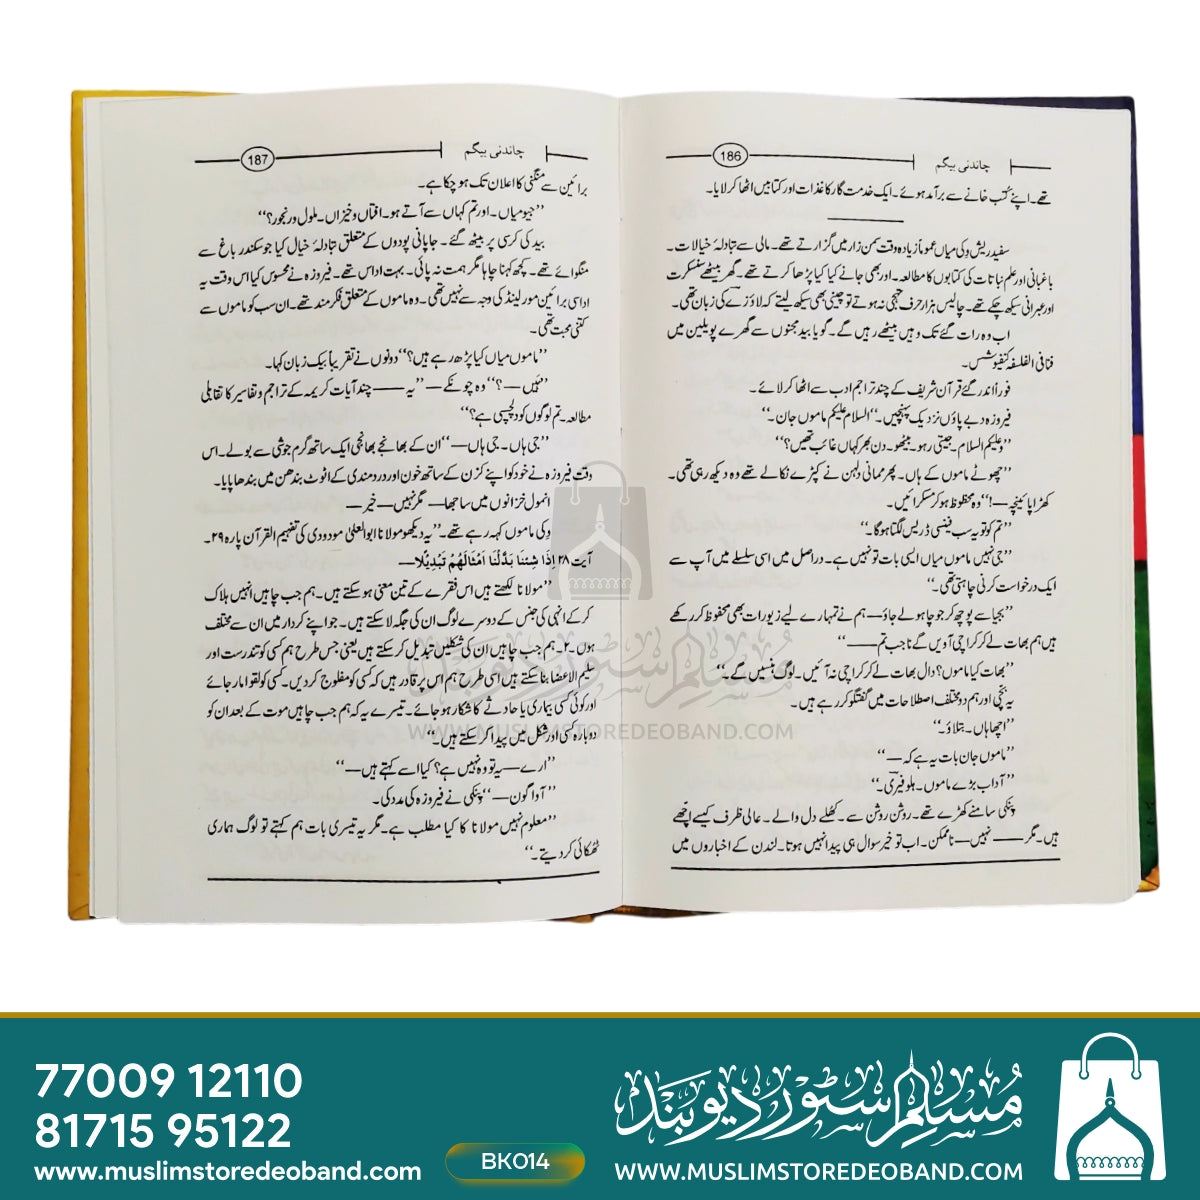 چاندنی بیگم
186
تھے۔ اپنے کُتب خانے سے برآمد ہوئے۔ ایک خدمت گار کاغذات اور کتابیں اٹھا کر لایا۔
سفید ریش وکی میاں عموماً زیادہ وقت سمن زار میں گزارتے تھے۔ مالی سے تبادلہ خیالات۔
باغبانی اور علم نباتات کی کتابوں کا مطالعہ۔ اور بھی جانے کیا کیا پڑھا کرتے تھے۔ گھر بیٹھے سنسکرت
اور عبرانی سیکھ چکے تھے۔ چالیس ہزار حرف تہجی نہ ہوتے تو چینی بھی سیکھ لیتے کہ لاؤزے کی زبان تھی۔
اب وہ رات گئے تک وہیں بیٹھے رہیں گے۔ گویا بید مجنوں سے گھرے پویلین میں
فنافی الفلسفہ کنفیوشس۔
فوراً اندر گئے قرآن شریف کے چند تراجم ادب سے اٹھا کر لائے۔
فیروزہ دبے پاؤں نزدیک پہنچیں۔ ’’السلام علیکم ماموں جان۔‘‘
’’وعلیکم السلام۔ جیتی رہو۔ بیٹھو۔ دن بھر کہاں غائب تھیں؟‘‘
’’چھوٹے ماموں کے ہاں۔ پھر ممانی دلہن نے کپڑے نکالے تھے وہ دیکھ رہی تھی۔
کھڑا پائیچہ —!‘‘ وہ محظوظ ہو کر مسکرائیں۔
’’تم کو تو یہ سب فینسی ڈریس لگتا ہوگا۔‘‘
’’جی نہیں ماموں میاں ایسی بات تو نہیں ہے۔ دراصل میں اسی سلسلے میں آپ سے
ایک درخواست کرنی چاہتی تھی۔‘‘
’’بجیا سے پوچھ کر جو چاہو لے جاؤ — ہم نے تمہارے لیے زیورات بھی محفوظ کر رکھے
ہیں ہم بھات لے کر کراچی آویں گے نا جب تم ——‘‘
’’بھات کیا ماموں؟ دال بھات لے کر کراچی نہ آئیں۔ لوگ ہنسیں گے۔‘‘
یہ بچی اور ہم دو مختلف اصطلاحات میں گفتگو کر رہے ہیں۔
’’اچھا ہاں۔ بتلاؤ۔‘‘
’’ماموں جان بات یہ ہے کہ —‘‘
’’آداب بڑے ماموں۔ ہلو فیری۔‘‘
پنکی سامنے کھڑے تھے۔ روشن روشن سے۔ کھلے دل والے۔ عالی ظرف کیسے اچھے
ہیں۔ مگر —— نہیں — ناممکن۔ اب تو خیر سوال ہی پیدا نہیں ہوتا۔ لندن کے اخباروں میں
چاندنی بیگم
187
برائین سے منگنی کا اعلان تک ہو چکا ہے۔
’’جیو میاں۔ اور تم کہاں سے آتے ہو۔ افتاں و خیزاں۔ ملول و رنجور؟‘‘
بید کی کرسی پر بیٹھ گئے۔ جاپانی پودوں کے متعلق تبادلۂ خیال کیا جو سکندر باغ سے
منگوائے تھے۔ کچھ کہنا چاہا مگر ہمت نہ پائی۔ بہت اداس تھے۔ فیروزہ نے محسوس کیا اس وقت یہ
اداسی برائین مور لینڈ کی وجہ سے نہیں تھی۔ وہ ماموں کے متعلق فکر مند تھے۔ ان سب کو ماموں سے
کتنی محبت تھی۔
’’ماموں میاں کیا پڑھ رہے ہیں؟‘‘ دونوں نے تقریباً بیک زبان کہا۔
’’ہَیں —؟‘‘ وہ چونکے — ’’یہ —— چند آیات کریمہ کے تراجم و تفاسیر کا تقابلی
مطالعہ۔ تم لوگوں کو دلچسپی ہے؟‘‘
’’جی ہاں۔ جی ہاں —‘‘ ان کے بھانجے بھانجی ایک ساتھ گرم جوشی سے بولے۔ اس
وقت فیروزہ نے خود کو اپنے کزن کے ساتھ خون اور دردمندی کے اٹوٹ بندھن میں بندھا پایا۔
انمول خزانوں میں ساجھا — مگر نہیں — خیر —
وکی ماموں کہہ رہے تھے۔ ’’یہ دیکھو مولانا ابوالعلیٰ مودودی کی تفہیم القرآن پارہ ۲۹۔
آیت ۲۸ اِذَا شِئنَا بَدَّلْنَا اَمْثَالَهُمْ تَبْدِيْلًا —
’’مولانا لکھتے ہیں اس فقرے کے تین معنی ہو سکتے ہیں۔ ہم جب چاہیں انہیں ہلاک
کر کے انہی کی جنس کے دوسرے لوگ ان کی جگہ لا سکتے ہیں۔ جو اپنے کردار میں ان سے مختلف
ہوں۔ ۲۔ ہم جب چاہیں ان کی شکلیں تبدیل کر سکتے ہیں یعنی جس طرح ہم کسی کو تندرست اور
سلیم الاعضا بنا سکتے ہیں اسی طرح ہم اس پر قادر ہیں کہ کسی کو مفلوج کر دیں۔ کسی کو لقوا مار جائے
اور کوئی کسی بیماری یا حادثے کا شکار ہو جائے۔ تیسرے یہ کہ ہم جب چاہیں موت کے بعد ان کو
دوبارہ کسی اور شکل میں پیدا کر سکتے ہیں۔‘‘
’’ارے — یہ تو وہ نہیں ہے؟ کیا اسے کہتے ہیں —‘‘
’’آواگون —‘‘ پنکی نے فیروزہ کی مدد کی۔
’’معلوم نہیں مولانا کا کیا مطلب ہے۔ مگر یہ تیسری بات ہم کہتے تو لوگ ہماری
ٹھکائی کر دیتے۔‘‘
مُسلم سٹور دیوبند
WWW.MUSLIMSTOREDEOBAND.COM
77009 12110
81715 95122
www.muslimstoredeoband.com
BK014
مُسلم سٹور دیوبند
WWW.MUSLIMSTOREDEOBAND.COM